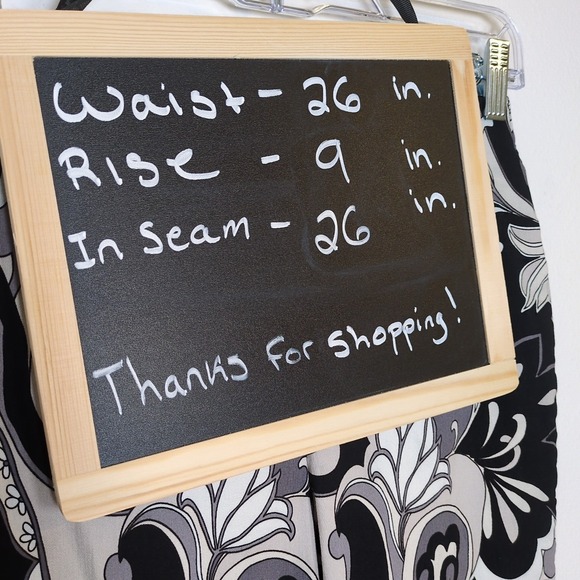 Waist - 26 in.
Rise - 9 in.
In Seam - 26 in.
Thanks for shopping!